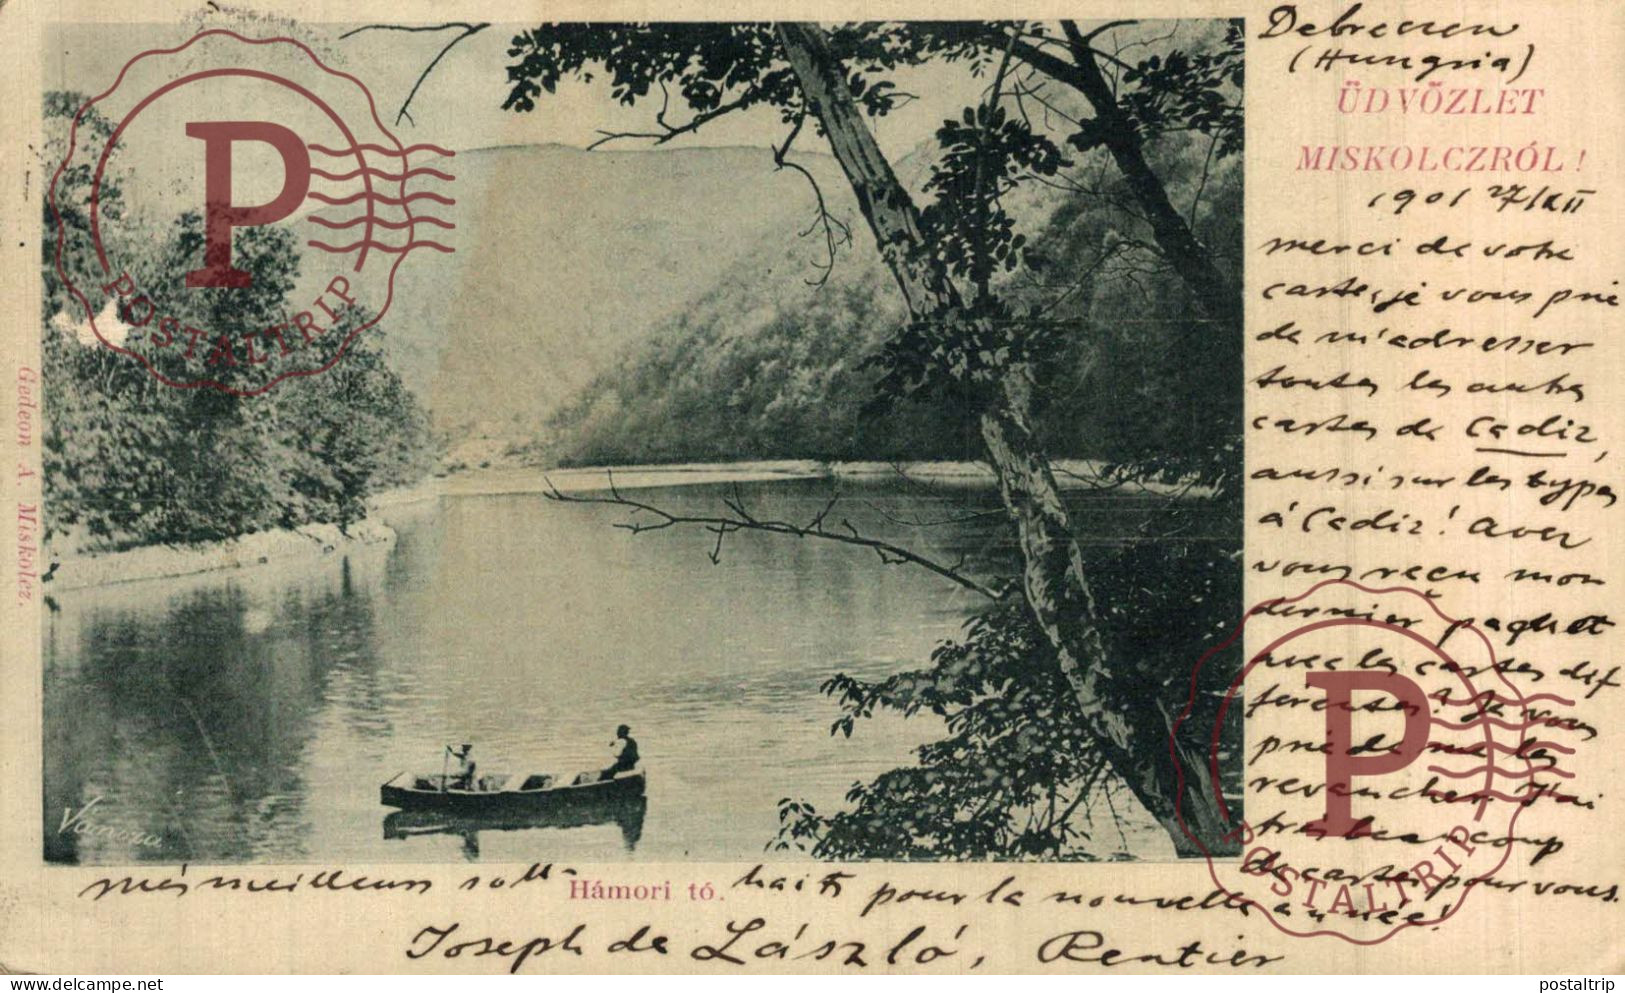 Debreczen
(Hungria)
ÜDVÖZLET
MISKOLCZRÓL!
1901 27/XII
merci de votre
carte, je vous prie
de m'adresser
toutes les autres
cartes de Cadiz,
aussi sur les types
á Cadiz! Avez
vous reçu mon
dernier paquet
avec les cartes dif
férentes? Je vous
prie de me les
revancher. J'ai
trés beaucoup
de cartes pour vous.
més meilleurs souhaits pour la nouvelle année!
Hámori tó.
Joseph de László, Rentier
Gedeon A. Miskolcz.
POSTALTRIP
POSTALTRIP
www.postaltrip.com
postaltrip